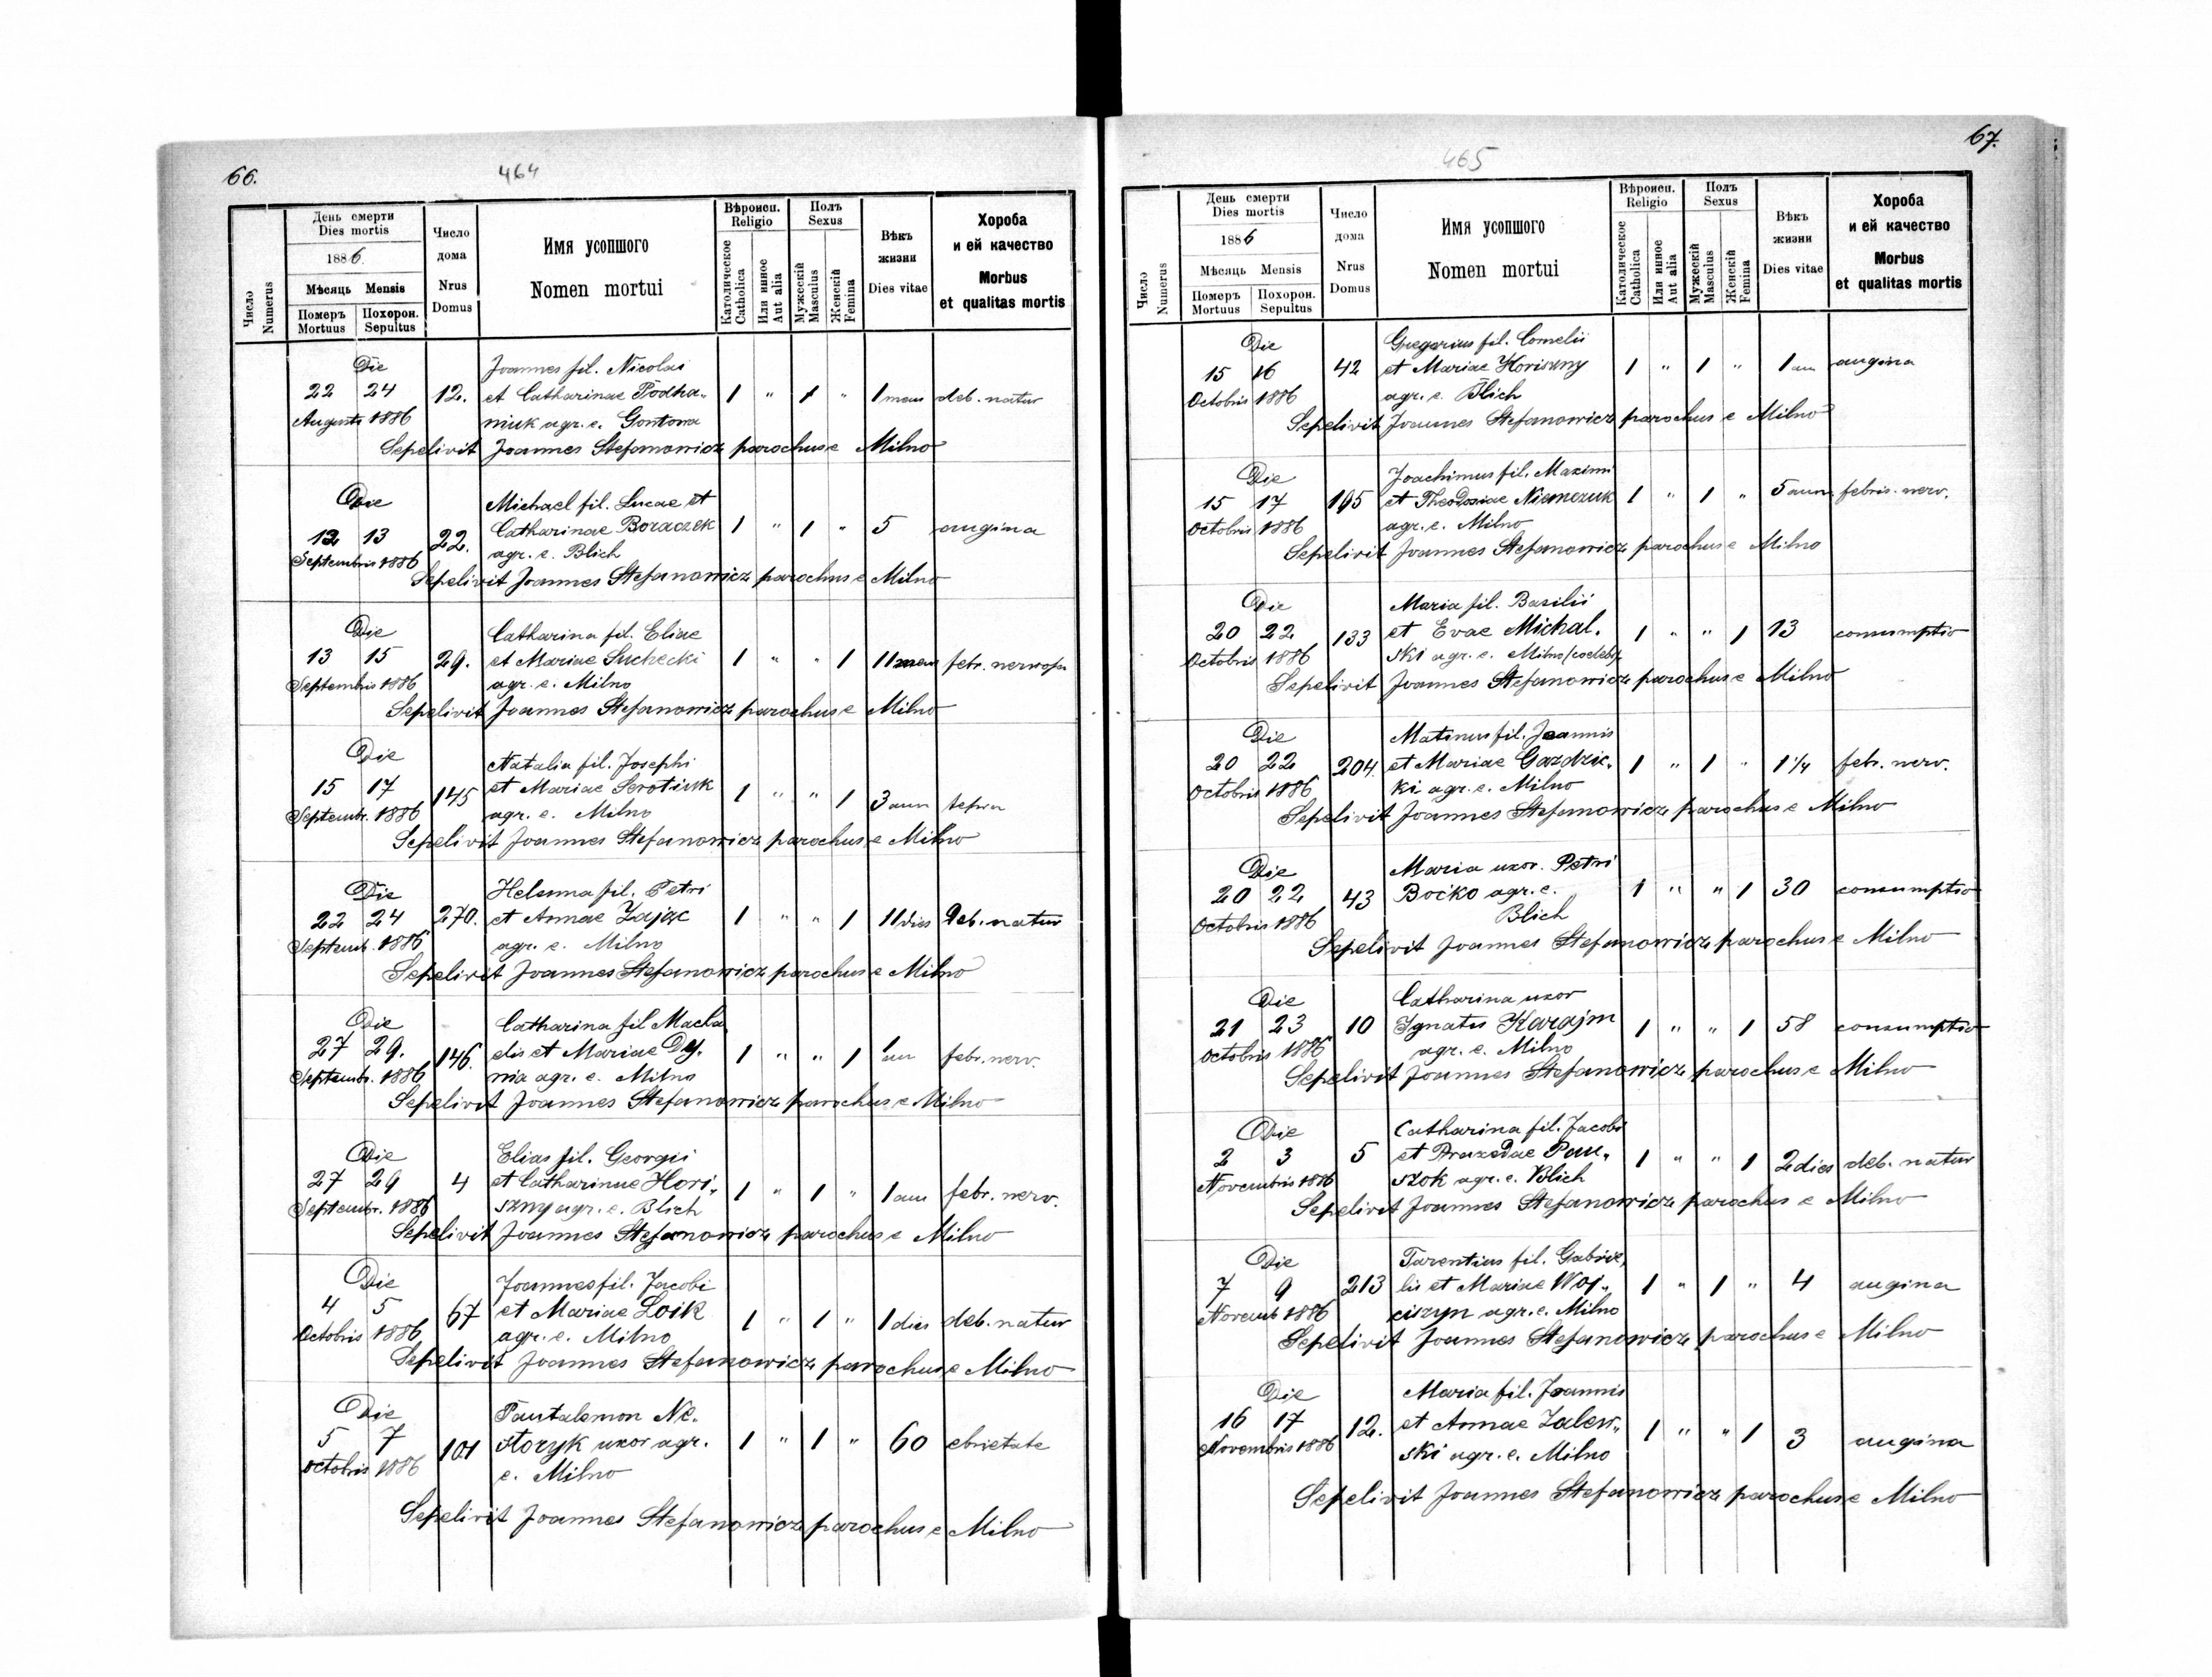 66.
464
Число
Numerus
День смерти
Dies mortis
1886.
Мѣсяць Mensis
Померъ
Mortuus
Похорон.
Sepultus
Число
дома
Nrus
Domus
Имя усопшого
Nomen mortui
Вѣроисп.
Religio
Католическое
Catholica
Или инное
Aut alia
Полъ
Sexus
Мужескій
Masculus
Женскій
Femina
Вѣкъ
жизни
Dies vitae
Хороба
и ей качество
Morbus
et qualitas mortis
Die
Joannes fil. Nicolai
22 24 12. et Catharinae Podha„ 1 " 1 " 1 mens deb. natur
Augusti 1886 niuk agr. e. Gontowa
Sepelivit Joannes Stefanowicz parochus e Milno
Die
Michael fil. Lucae et
12 13 22. Catharinae Boraczek 1 " 1 " 5 angina
Septembris 1886 agr. e. Blich
Sepelivit Joannes Stefanowicz parochus e Milno
Die
Catharina fil. Eliae
13 15 29. et Mariae Suchecki 1 " " 1 11 mens febr. nervosa
Septembris 1886 agr. e. Milno
Sepelivit Joannes Stefanowicz parochus e Milno
Die
Natalia fil. Josephi
15 17 145 et Mariae Serotiuk 1 " " 1 3 ann
Septembr. 1886 agr. e. Milno
Sepelivit Joannes Stefanowicz parochus e Milno
Die
Helenna fil. Petri
22 24 270. et Annae Zając 1 " " 1 11 dies deb. natur
Septemb. 1886 agr. e. Milno
Sepelivit Joannes Stefanowicz parochus e Milno
Die
Catharina fil Macha
27 29. 146. elis et Mariae Dy„ 1 " " 1 1 an febr. nerv.
Septembr. 1886 nia agr. e. Milno
Sepelivit Joannes Stefanowicz parochus e Milno
Die
Elias fil. Georgii
27 29 4 et Catharinae Hori„ 1 " 1 " 1 ann febr. nerv.
Septembr. 1886 szny agr. e. Blich
Sepelivit Joannes Stefanowicz parochus e Milno
Die
Joannes fil. Jacobi
4 5 67 et Mariae Loik 1 " 1 " 1 dies deb. natur
Octobris 1886 agr. e. Milno
Sepelivit Joannes Stefanowicz parochus e Milno
Die
Pantalemon Ne„
5 7 101 storyk uxor agr. 1 " 1 " 60 ebrietate
Octobris 1886 e. Milno
Sepelivit Joannes Stefanowicz parochus e Milno
67.
465
Число
Numerus
День смерти
Dies mortis
1886
Мѣсяць Mensis
Померъ
Mortuus
Похорон.
Sepultus
Число
дома
Nrus
Domus
Имя усопшого
Nomen mortui
Вѣроисп.
Religio
Католическое
Catholica
Или инное
Aut alia
Полъ
Sexus
Мужескій
Masculus
Женскій
Femina
Вѣкъ
жизни
Dies vitae
Хороба
и ей качество
Morbus
et qualitas mortis
Die
Gregorius fil. Cornelii
15 16 42 et Mariae Horiszny 1 " 1 " 1 ann angina
Octobris 1886 agr. e. Blich
Sepelivit Joannes Stefanowicz parochus e Milno
Die
Joachimus fil. Maximi
15 17 195 et Theodosiae Niemczuk 1 " 1 " 5 ann febris. nerv.
Octobris 1886 agr. e. Milno
Sepelivit Joannes Stefanowicz parochus e Milno
Die
Maria fil. Basilii
20 22 133 et Evae Michal„ 1 " " 1 13 consumptio
Octobris 1886 ski agr. e. Milno (coelebs)
Sepelivit Joannes Stefanowicz parochus e Milno
Die
Matinus fil. Joannis
20 22 204. et Mariae Gazdzic„ 1 " 1 " 1 1/4 febr. nerv.
Octobris 1886 ki agr. e. Milno
Sepelivit Joannes Stefanowicz parochus e Milno
Die
Maria uxor. Petri
20 22 43 Boćko agr. e. 1 " " 1 30 consumptio
Octobris 1886 Blich
Sepelivit Joannes Stefanowicz parochus e Milno
Die
Catharina uxor
21 23 10 Ignatii Karajm 1 " " 1 58 consumptio
Octobris 1886 agr. e. Milno
Sepelivit Joannes Stefanowicz parochus e Milno
Die
Catharina fil. Jacobi
2 3 5 et Praxedae Pau„ 1 " " 1 2 dies deb. natur
Novembris 1886 szok agr. e. Blich
Sepelivit Joannes Stefanowicz parochus e Milno
Die
Tarentius fil. Gabrie„
7 9 213 lis et Mariae Woj„ 1 " 1 " 4 angina
Novemb 1886 ciszyn agr. e. Milno
Sepelivit Joannes Stefanowicz parochus e Milno
Die
Maria fil. Joannis
16 17 12. et Annae Zalew„ 1 " " 1 3 angina
Novembris 1886 ski agr. e. Milno
Sepelivit Joannes Stefanowicz parochus e Milno